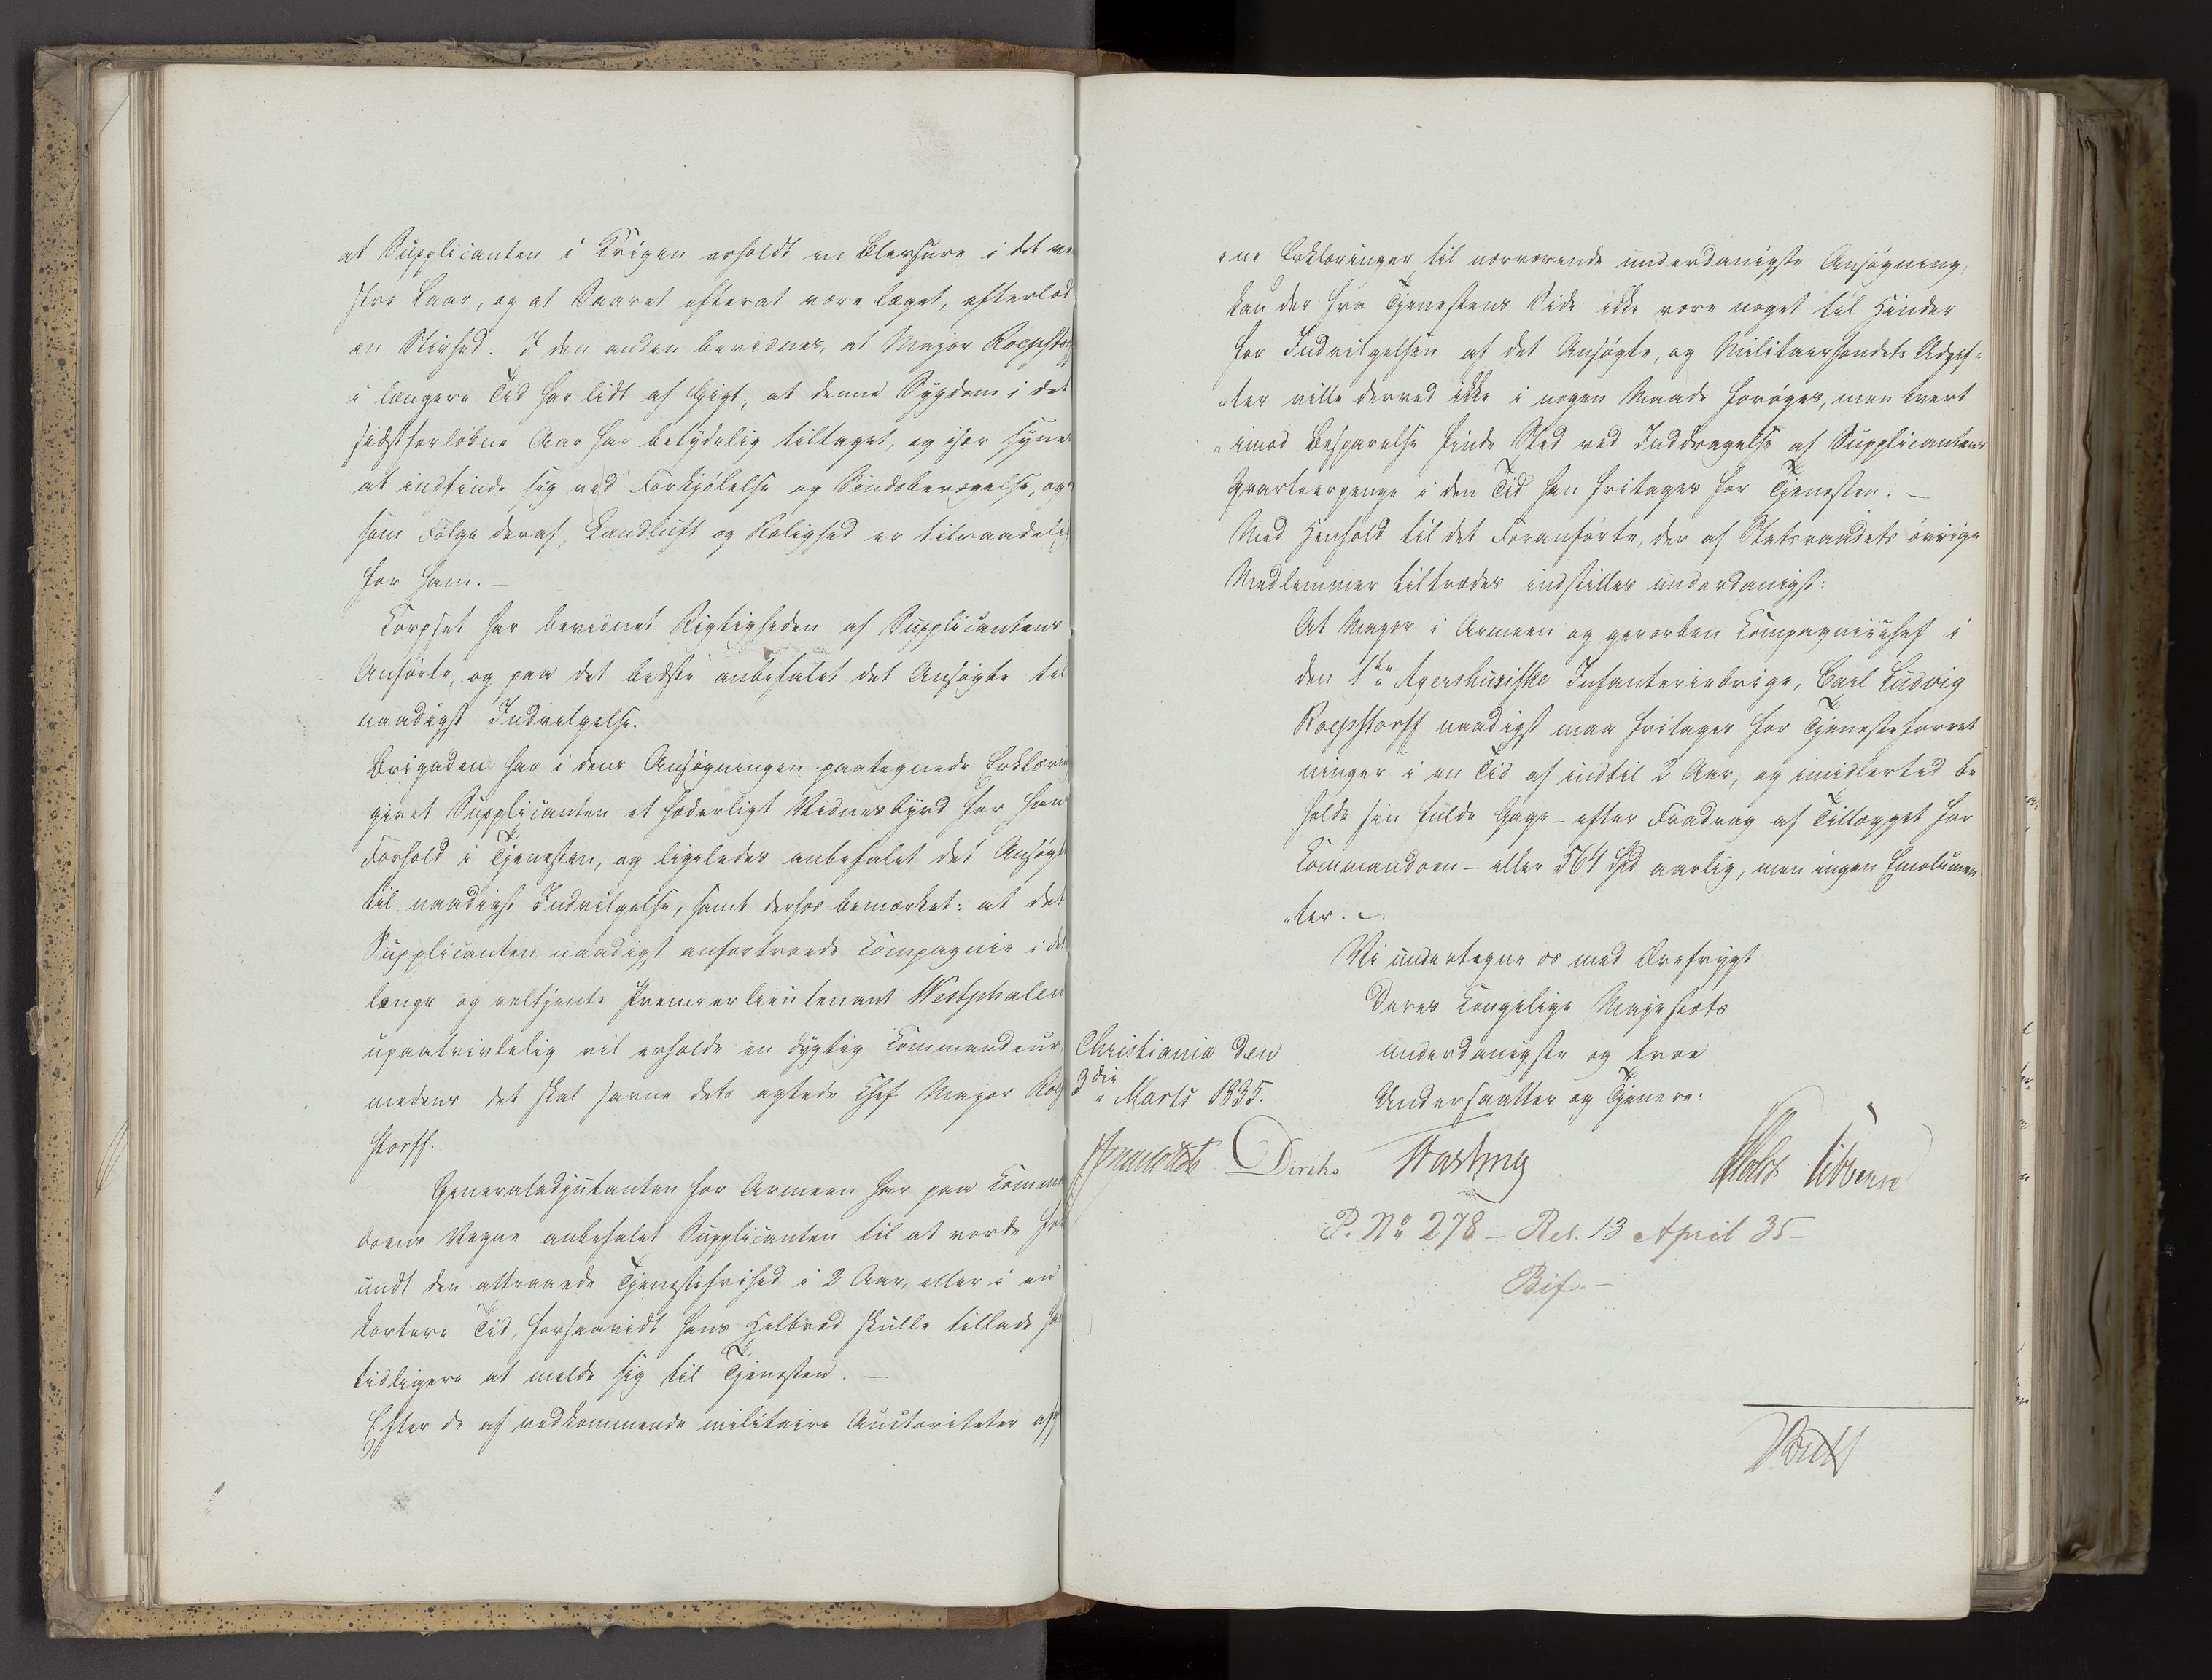 at Supplicanten i Krigen erholdt en Blessure i det ve
stre Laar, og at Saaret efterat være læget, efterlod
en Stivhed. I den anden bevidnes, at Major Roepstorff
i længere Tid har lidt af Gigt; at denne Sygdom i det
sidstforløbne Aar har betydelig tiltaget, og især synes
at indfinde sig ved Forkjølelse og Sindsbevægelse, og
som Følge deraf, Landluft og Rolighed er tilraadelig
for ham. —
Korpset har bevidnet Rigtigheden af Supplicantens
Anførte, og paa det bedste anbefalet det Ansøgte til
naadigst Indvilgelse.
Brigaden har i dens Ansøgningen paategnede Erklæring
givet Supplicanten et hæderligt Vidnesbyrd for hans
Forhold i Tjenesten, og ligeledes anbefalet det Ansøgte
til naadigst Indvilgelse, samt derhos bemærket: at det
Supplicanten naadigst anfortroede Compagnie i den
længe og veltjente Premierlieutenant Westphalen
upaatvivlelig vil erholde en dygtig Commandeur,
medens det skal savne dets agtede Chef Major Roep
storff.
Generaladjutanten for Armeen har paa Comman
doens Vegne anbefalet Supplicanten til at vorde for
undt den attraaede Tjenestefrihed i 2 Aar, eller i en
kortere Tid, forsaavidt hans Helbred skulle tillade ham
tidligere at melde sig til Tjenesten. —
Efter de af vedkommende militaire Auctoriteter aff
ne Erklæringer til nærværende underdanigste Ansøgning,
kan der fra Tjenestens Side ikke være noget til Hinder
for Indvilgelsen af det Ansøgte, og Militairfondets Udgif=
„ter ville derved ikke i nogen Maade forøges, men tvert
„imod Besparelse finde Sted ved Inddragelse af Supplicantens
Qvarteerpenge i den Tid han fritages for Tjenesten. —
Med Henhold til det Foranførte, der af Statsraadets øvrige
Medlemmer tiltrædes indstilles underdanigst:
At Major i Armeen og gevorben Compagniechef i
den 1ste Agershusiske Infanteriebrige, Carl Ludvig
Roepstorff naadigst maa fritages for Tjenesteforret
ninger i en Tid af indtil 2 Aar, og imidlertid be
holde sin fulde Gage – efter Fradrag af Tillægget for
Commandoen – eller 564 Spd aarlig, men ingen Emolumen
„ter. —
Vi undertegne os med Ærefrygt
Deres Kongelige Majestæts
underdanigste og troe
Undersaatter og Tjenere.
Christiania den
3die Marts 1835.
Diriks Fasting Holst Vibe
P. No 278 – Res. 13 April 35 –
Bif. –